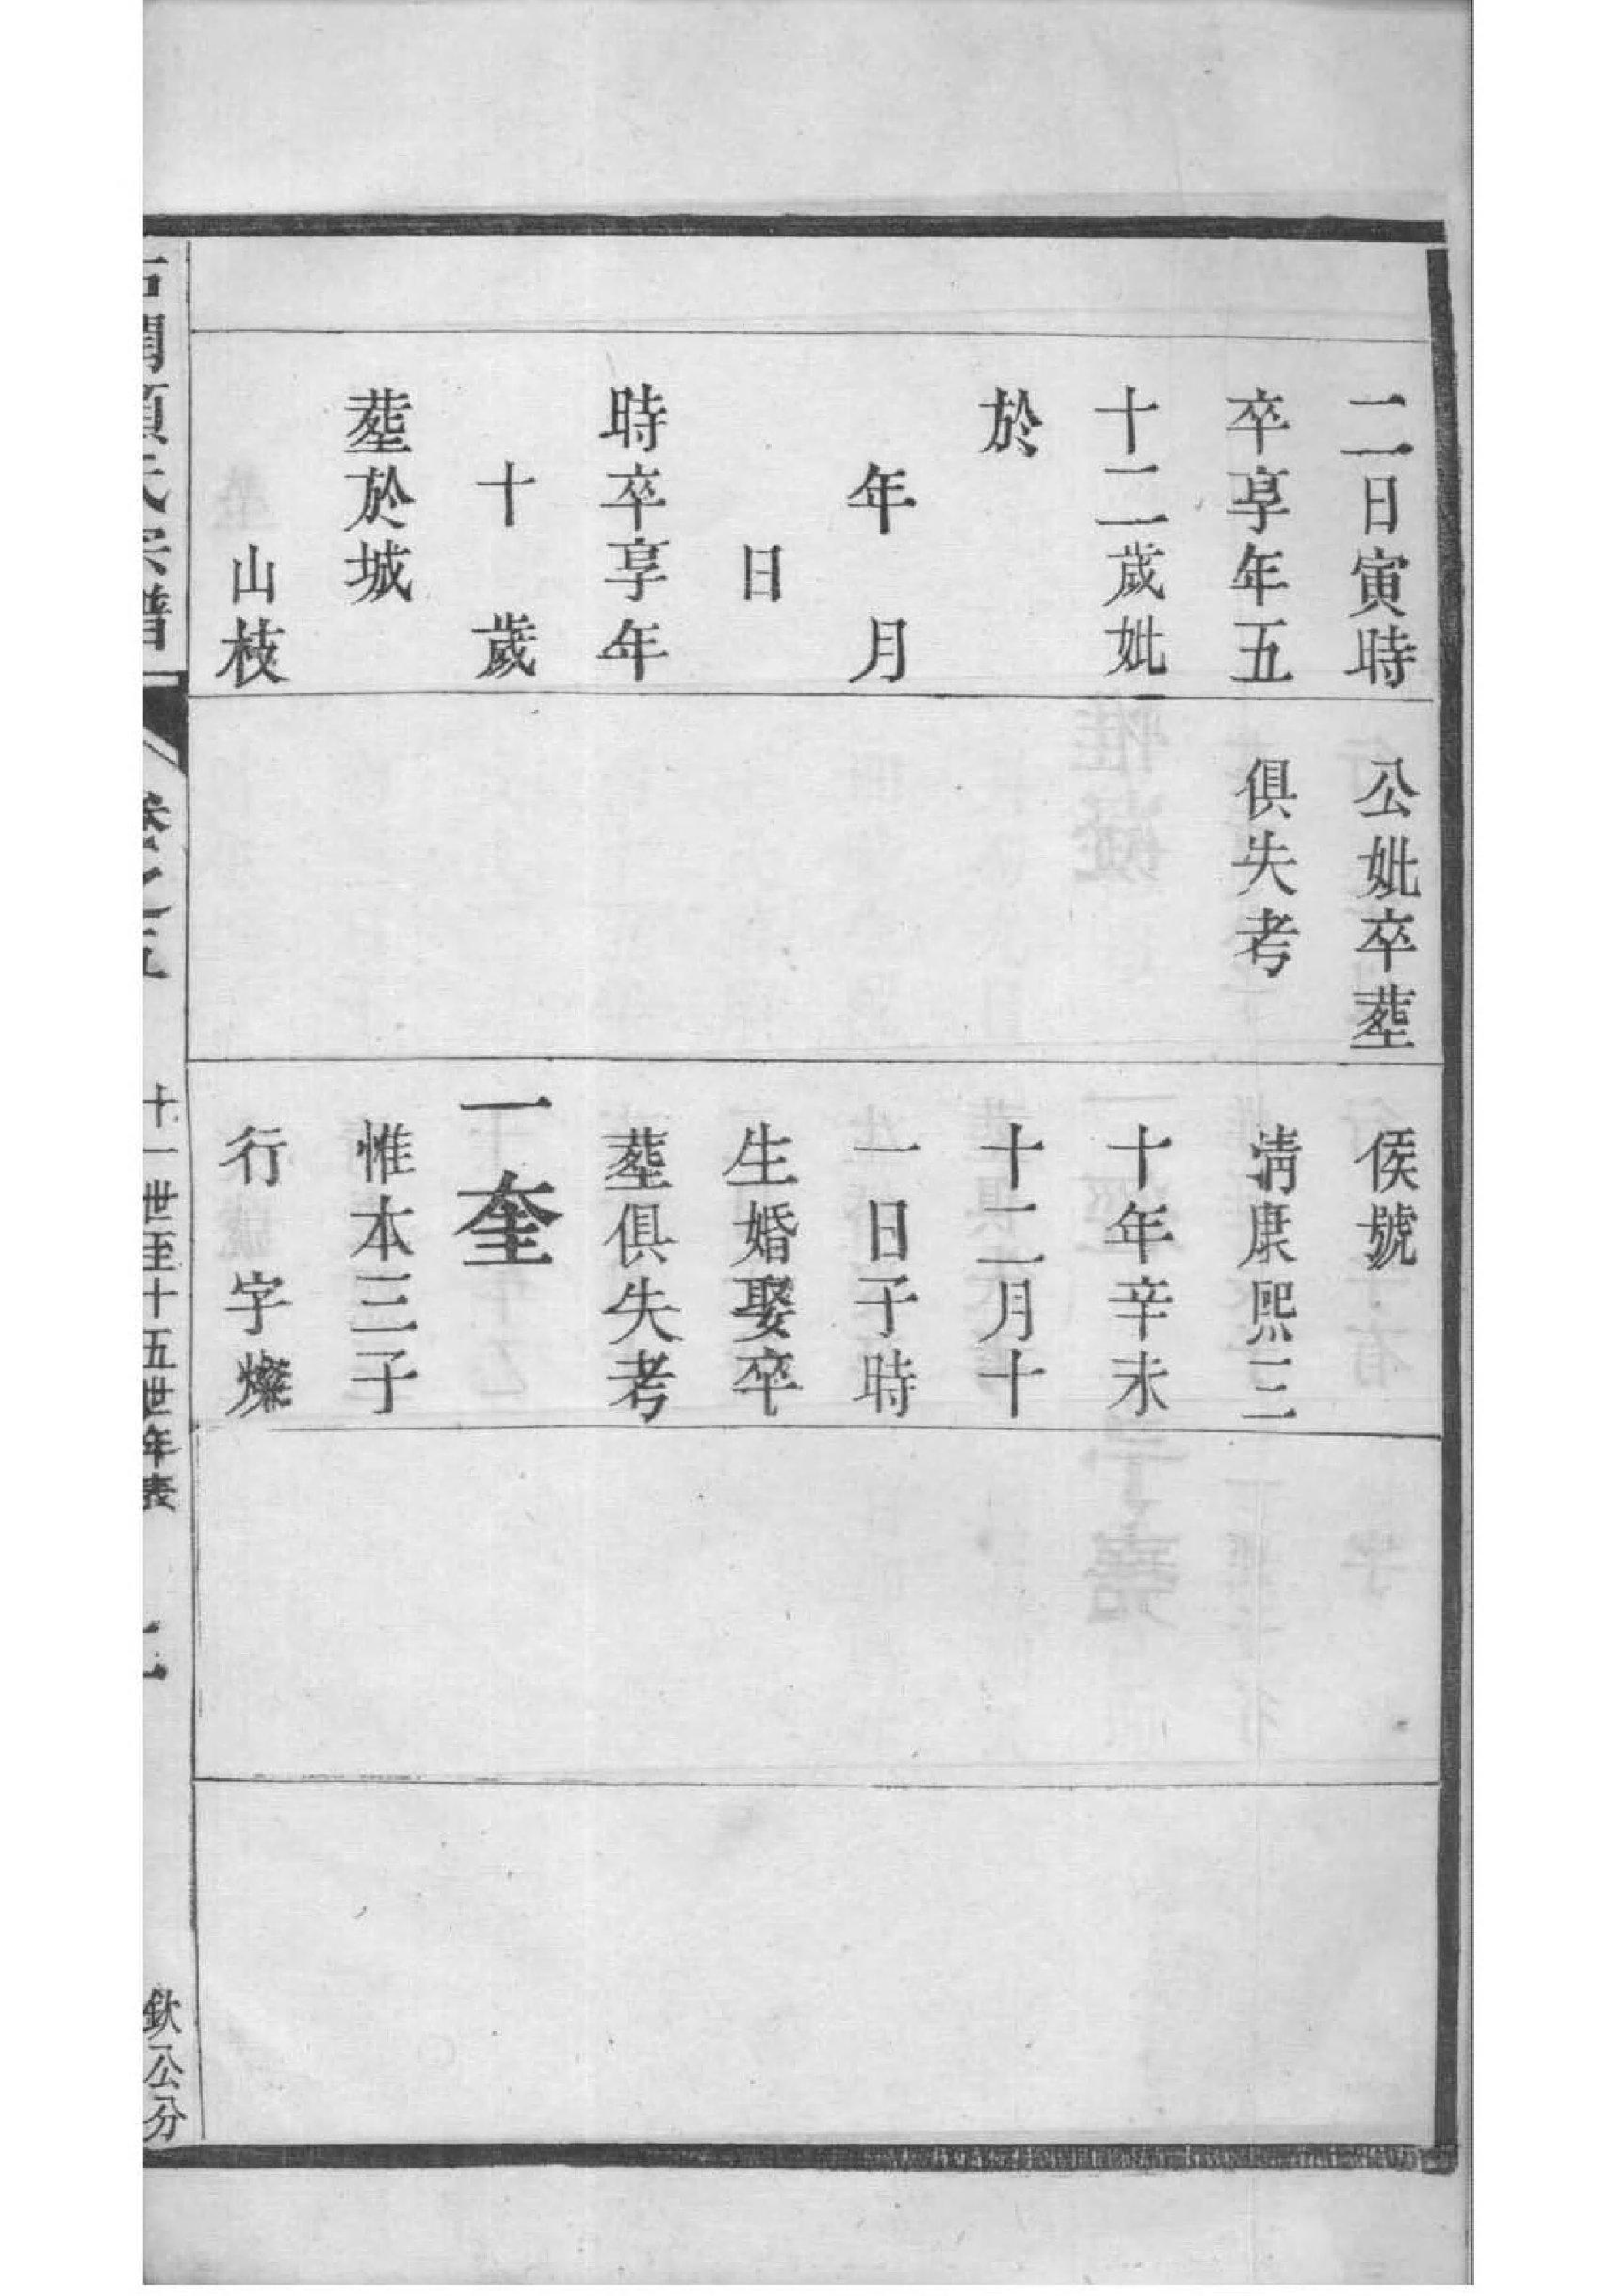 二日寅時
卒享年五
十二歲妣
於
年　月
日
時卒享年
十　歲
塟於城
山枝
公妣卒塟
俱失考
侯號
清康熙三
十年辛未
十二月十
一日子時
生婚娶卒
塟俱失考
一奎
惟本三子
行　字燦
氏宗譜
卷之五
十一世至十五世年表
欽公分